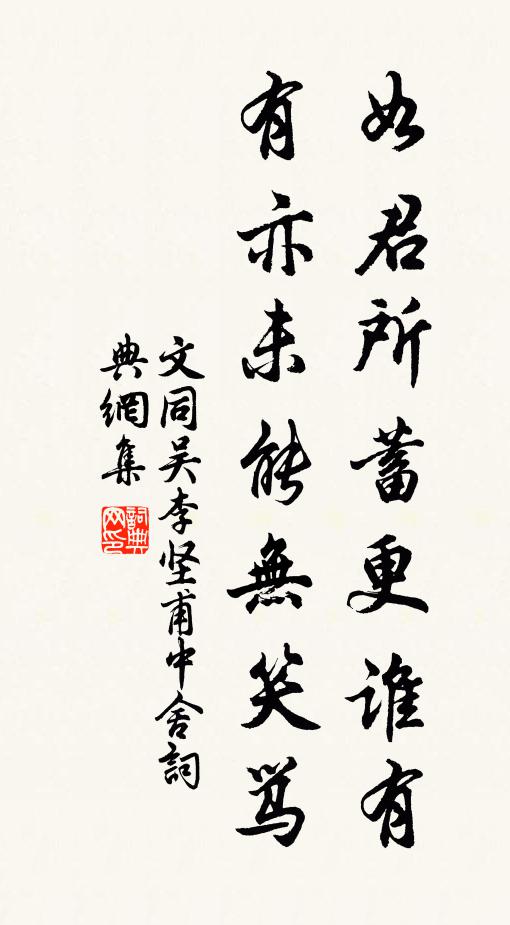 如君所蓄更谁有
有亦未能無笑骂
文同吴李坚甫中舍詞
典網集
詞典网印